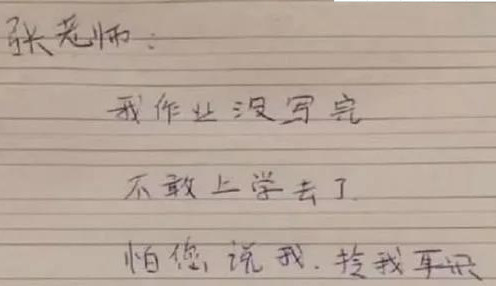 张老师：
我作业没写完
不敢上学去了
怕您说我.拴我耳朵